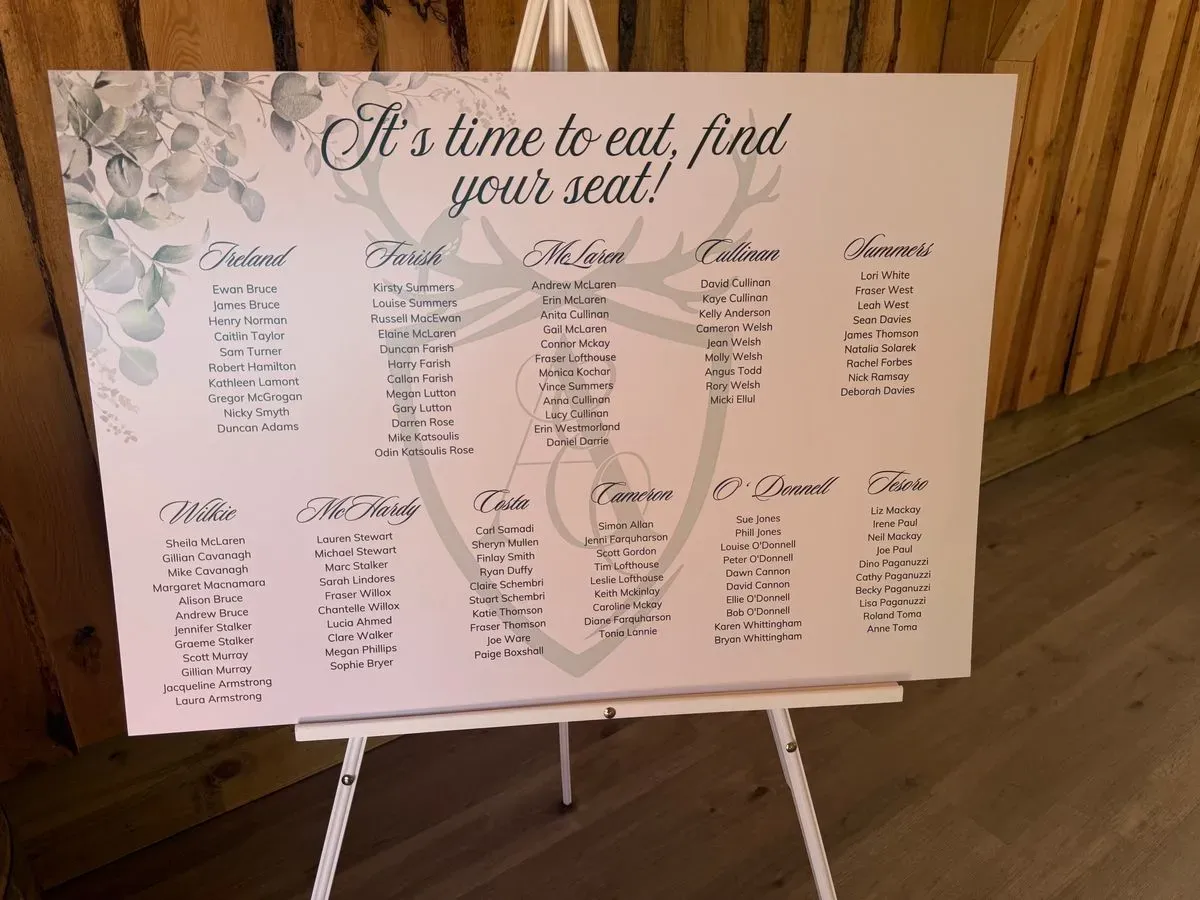 It's time to eat, find
your seat!
Ireland
Ewan Bruce
James Bruce
Henry Norman
Caitlin Taylor
Sam Turner
Robert Hamilton
Kathleen Lamont
Gregor McGrogan
Nicky Smyth
Duncan Adams
Farish
Kirsty Summers
Louise Summers
Russell MacEwan
Elaine McLaren
Duncan Farish
Harry Farish
Callan Farish
Megan Lutton
Gary Lutton
Darren Rose
Mike Katsoulis
Odin Katsoulis Rose
McLaren
Andrew McLaren
Erin McLaren
Anita Cullinan
Gail McLaren
Connor Mckay
Fraser Lofthouse
Monica Kochar
Vince Summers
Anna Cullinan
Lucy Cullinan
Erin Westmorland
Daniel Darrie
Cullinan
David Cullinan
Kaye Cullinan
Kelly Anderson
Cameron Welsh
Jean Welsh
Molly Welsh
Angus Todd
Rory Welsh
Micki Ellul
Summers
Lori White
Fraser West
Leah West
Sean Davies
James Thomson
Natalia Solarek
Rachel Forbes
Nick Ramsay
Deborah Davies
Wilkie
Sheila McLaren
Gillian Cavanagh
Mike Cavanagh
Margaret Macnamara
Alison Bruce
Andrew Bruce
Jennifer Stalker
Graeme Stalker
Scott Murray
Gillian Murray
Jacqueline Armstrong
Laura Armstrong
McHardy
Lauren Stewart
Michael Stewart
Marc Stalker
Sarah Lindores
Fraser Willox
Chantelle Willox
Lucia Ahmed
Clare Walker
Megan Phillips
Sophie Bryer
Costa
Carl Samadi
Sheryn Mullen
Finlay Smith
Ryan Duffy
Claire Schembri
Stuart Schembri
Katie Thomson
Fraser Thomson
Joe Ware
Paige Boxshall
Cameron
Simon Allan
Jenni Farquharson
Scott Gordon
Tim Lofthouse
Leslie Lofthouse
Keith Mckinlay
Caroline Mckay
Diane Farquharson
Tonia Lannie
O'Donnell
Sue Jones
Phill Jones
Louise O'Donnell
Peter O'Donnell
Dawn Cannon
David Cannon
Ellie O'Donnell
Bob O'Donnell
Karen Whittingham
Bryan Whittingham
Tesoro
Liz Mackay
Irene Paul
Neil Mackay
Joe Paul
Dino Paganuzzi
Cathy Paganuzzi
Becky Paganuzzi
Lisa Paganuzzi
Roland Toma
Anne Toma